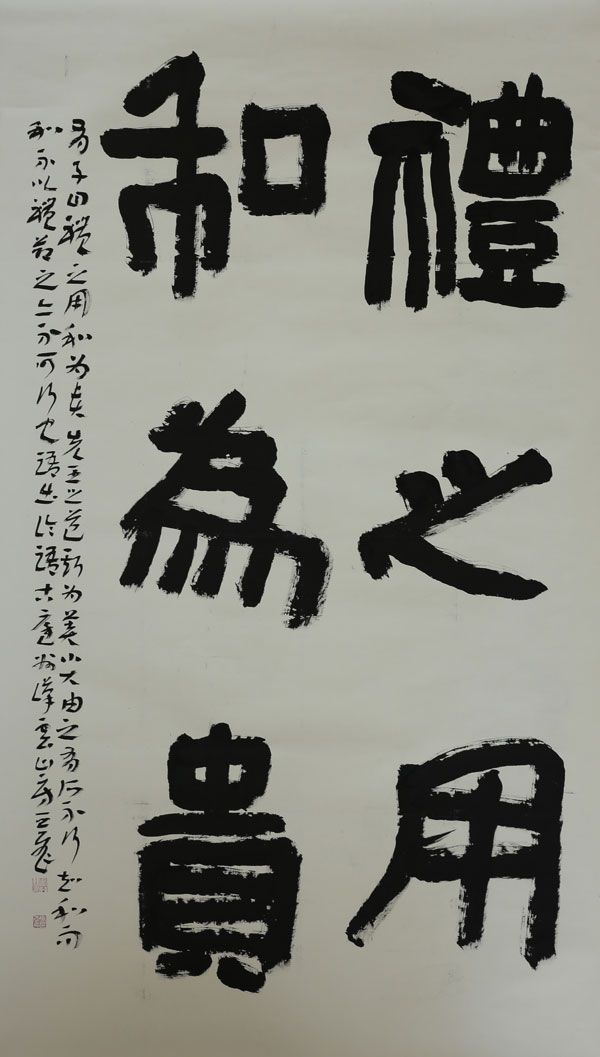 禮之用
和為貴
有子曰禮之用和為貴先王之道斯為美小大由之有所不行知和而
和不以禮節之亦不可行也語出論語古廬州雲山房